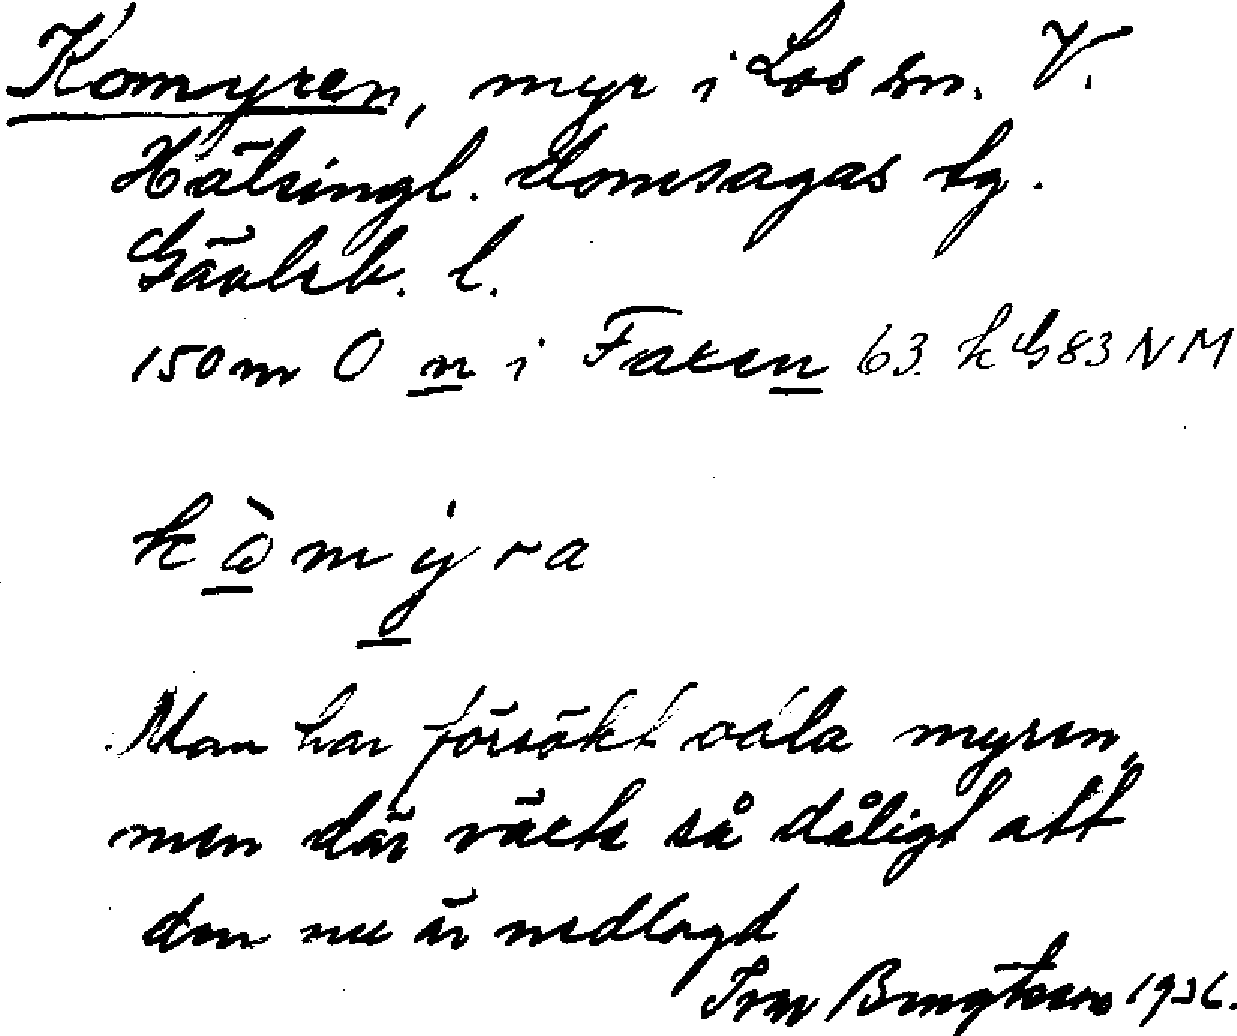 Komyren, myr i Los sn. V.
Hälsingl. domsagas tg.
Gävleb. l.
150 m O n i Faxen 63. k G 83 NM
kòmýra
Man har försökt odla myren,
men där växte så dåligt att
den nu är nedlagd
Ivar Bengtsson 1936.